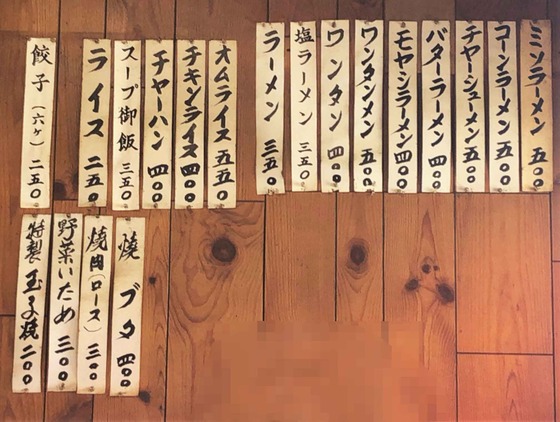 ミソラーメン 五〇〇
コーンラーメン 五〇〇
チャーシューメン 五〇〇
バターラーメン 四〇〇
モヤシラーメン 四〇〇
ワンタンメン 五〇〇
ワンタン 四〇〇
塩ラーメン 三五〇
ラーメン 三五〇
オムライス 五五〇
チキンライス 四〇〇
チャーハン 四〇〇
スープ御飯 三五〇
ライス 二五〇
餃子(六ヶ) 二五〇
焼ブタ 四〇〇
焼肉(ロース) 三〇〇
野菜いため 三〇〇
特製玉子焼 二〇〇